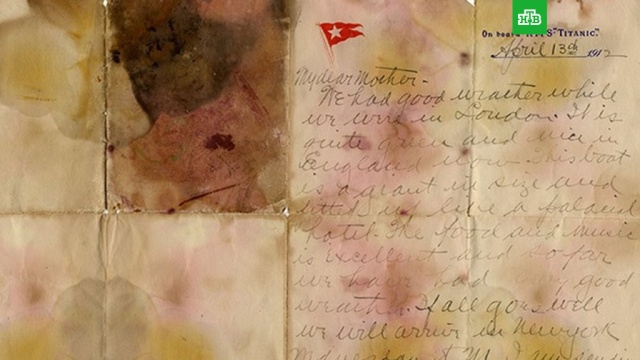 НТВ
On board R.M.S "Titanic".
April 13th 1912
My dear Mother -
We had good weather while
we were in London. It is
quite green and nice in
England now. This boat
is a giant in size and
fitted up like a palacial
hotel. The food and music
is excellent and so far
we have had very good
weather. If all goes well
we will arrive in New York
Wednesday